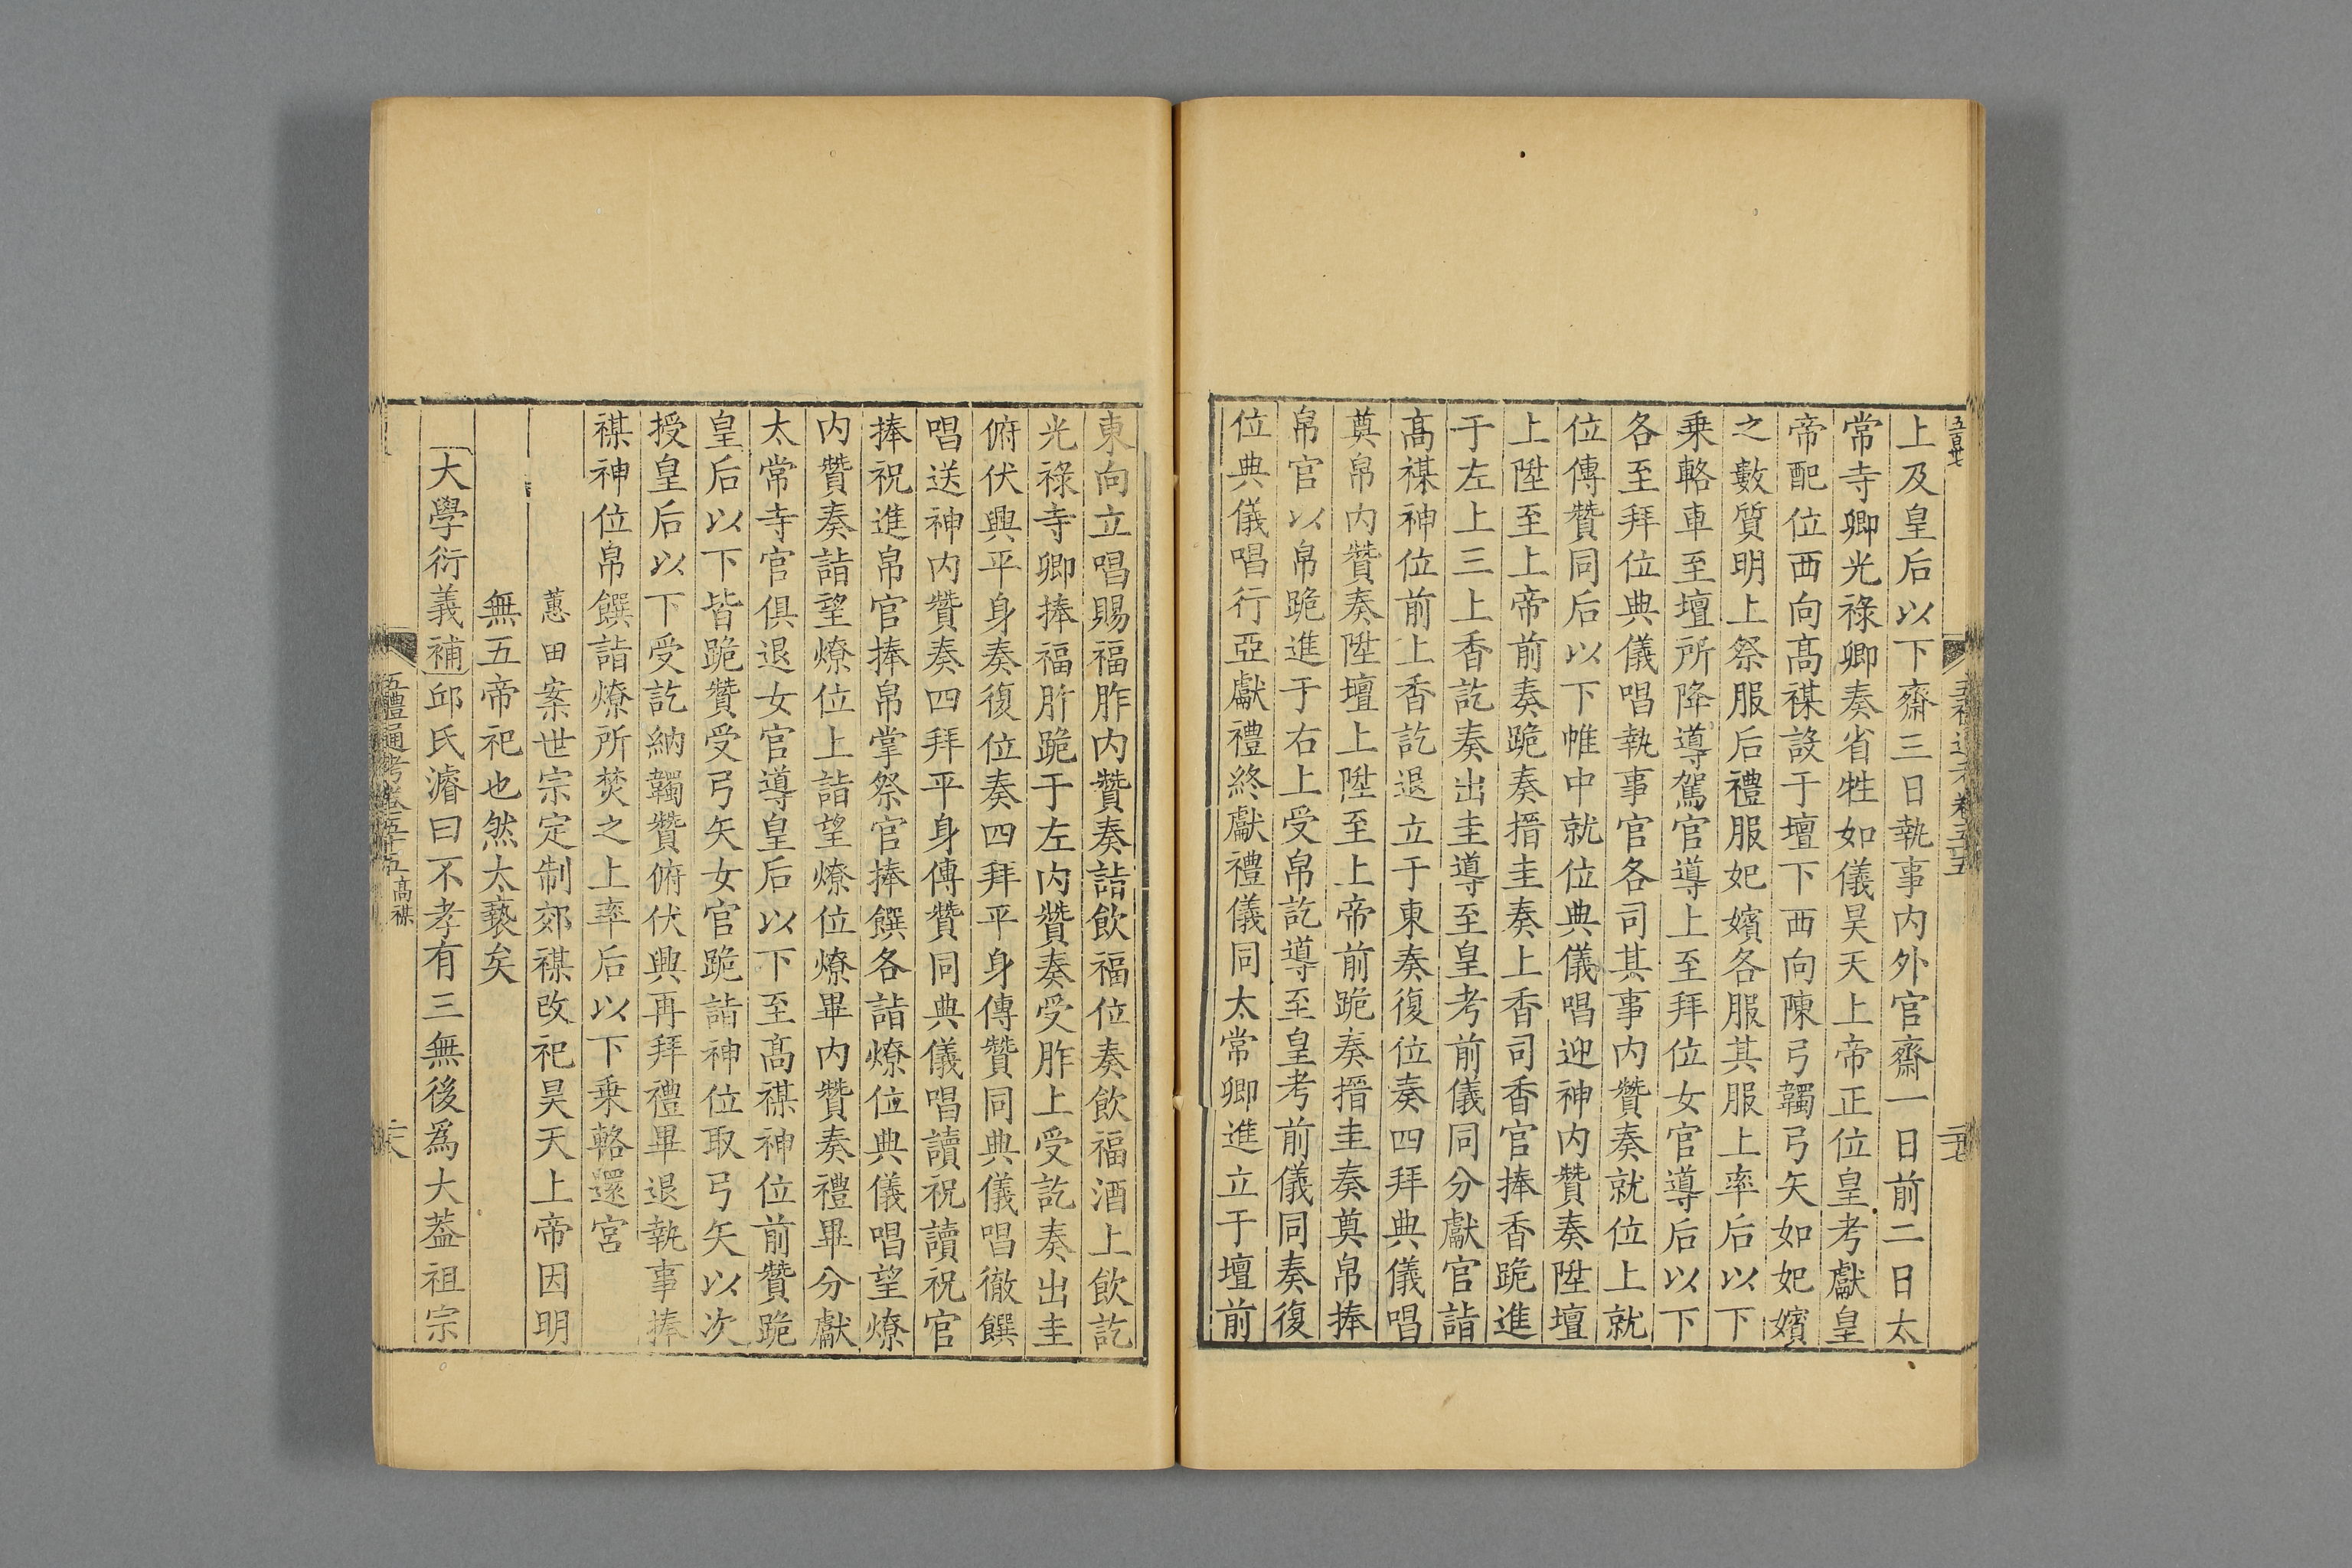 上及皇后以下齋三日執事内外官齋一日前二日太
常寺卿光祿卿奏省牲如儀昊天上帝正位皇考獻皇
帝配位西向髙禖設于壇下西向陳弓韣弓矢如妃嬪
之數質明上祭服后禮服妃嬪各服其服上率后以下
乗輅車至壇所降導駕官導上至拜位女官導后以下
各至拜位典儀唱執事官各司其事内贊奏就位上就
位傳贊同后以下帷中就位典儀唱迎神内贊奏陞壇
上陞至上帝前奏跪奏搢圭奏上香司香官捧香跪進
于左上三上香訖奏出圭導至皇考前儀同分獻官詣
髙禖神位前上香訖退立于東奏復位奏四拜典儀唱
奠帛内贊奏陞壇上陞至上帝前跪奏搢圭奏奠帛捧
帛官以帛跪進于右上受帛訖導至皇考前儀同奏復
位典儀唱行亞獻禮終獻禮儀同太常卿進立于壇前
東向立唱賜福胙内贊奏詣飲福位奏飲福酒上飲訖
光祿寺卿捧福胙跪于左内贊奏受胙上受訖奏出圭
俯伏興平身奏復位奏四拜平身傳贊同典儀唱徹饌
唱送神内贊奏四拜平身傳贊同典儀唱讀祝讀祝官
捧祝進帛官捧帛掌祭官捧饌各詣燎位典儀唱望燎
内贊奏詣望燎位上詣望燎位燎畢内贊奏禮畢分獻
太常寺官俱退女官導皇后以下至髙禖神位前贊跪
皇后以下皆跪贊受弓矢女官跪詣神位取弓矢以次
授皇后以下受訖納韣贊俯伏興再拜禮畢退執事捧
禖神位帛饌詣燎所焚之上率后以下乗輅還宮
蕙田案世宗定制郊禖改祀昊天上帝因明
無五帝祀也然太褻矣
大學衍義補邱氏濬曰不孝有三無後爲大葢祖宗
五禮通考卷五十五 髙禖